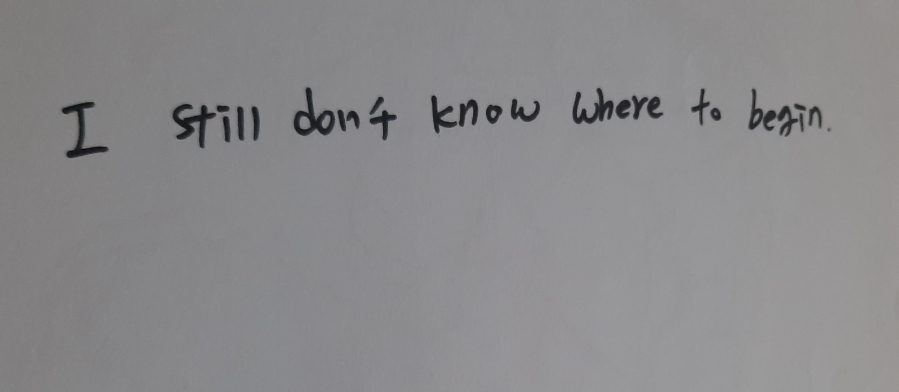 I still don't know where to begin.